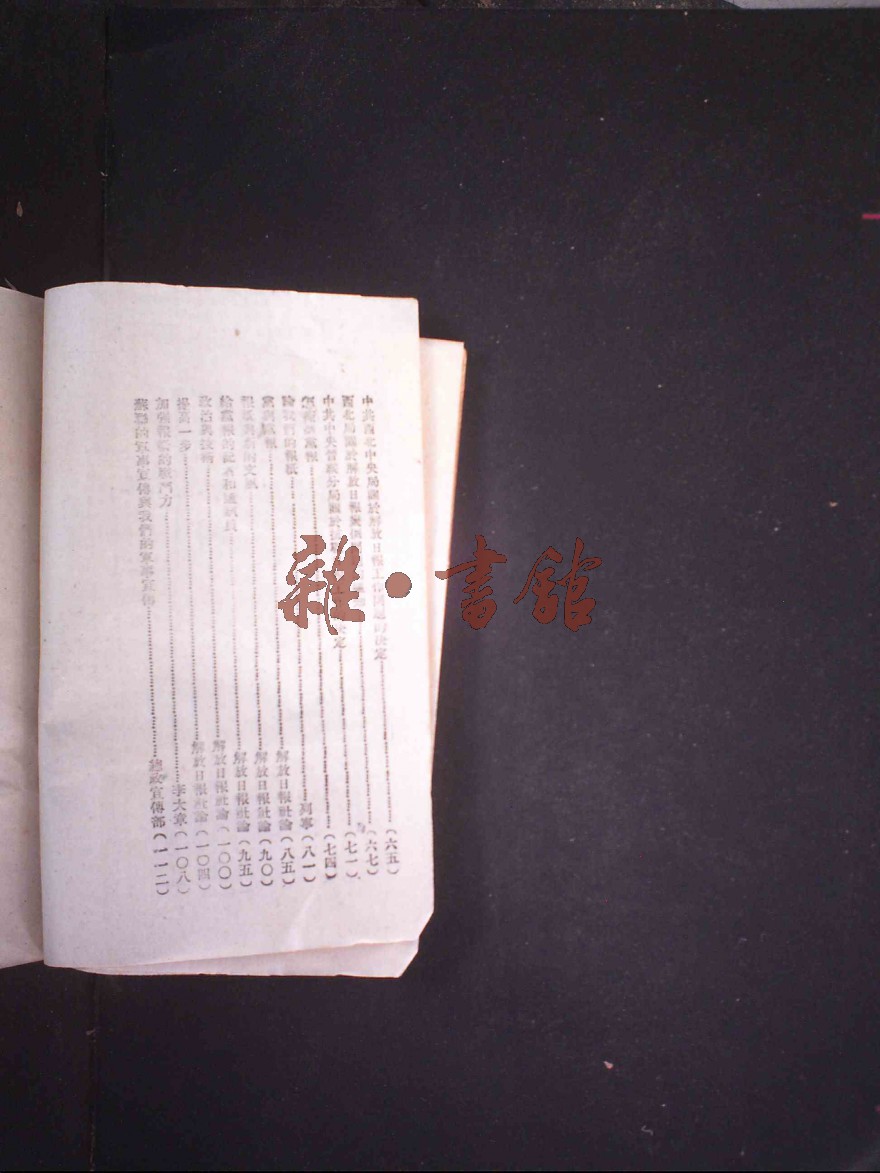 中共西北中央局關於解放日報工作問題的決定……(六五)
西北局關於解放日報……(六七)
中共中央晉綏分局關於……決定……(七一)
……(七四)
怎樣辦黨報……列寧(八一)
論我們的報紙……解放日報社論(八五)
黨與黨報……解放日報社論(九〇)
報紙與新的文風……解放日報社論(九五)
給黨報的記者和通訊員……解放日報社論(一〇〇)
政治與技術……解放日報社論(一〇四)
提高一步……李大章(一〇八)
加強報紙的戰鬥力
蘇聯的軍事宣傳與我們的軍事宣傳……總政宣傳部(一一二)
雜·書館